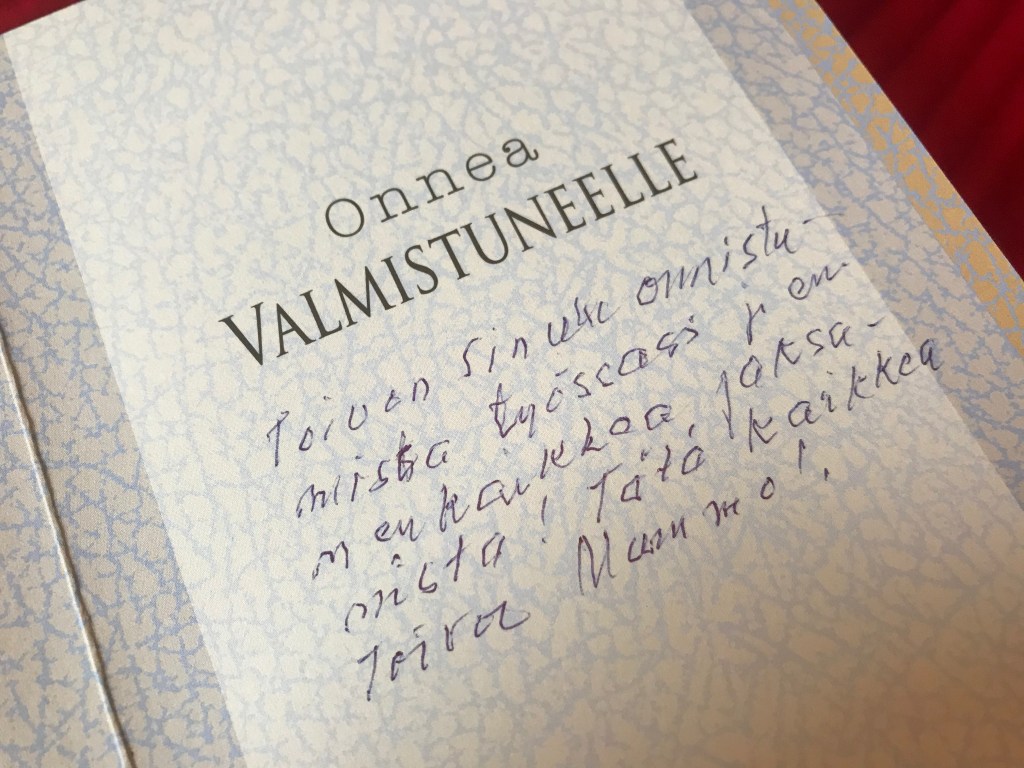 Onnea
VALMISTUNEELLE
Toivon sinulle onnistu-
mista työssäsi j en-
nenkaikkea, jaksa-
mista! Tätä kaikkea
toivoo Mummo!.